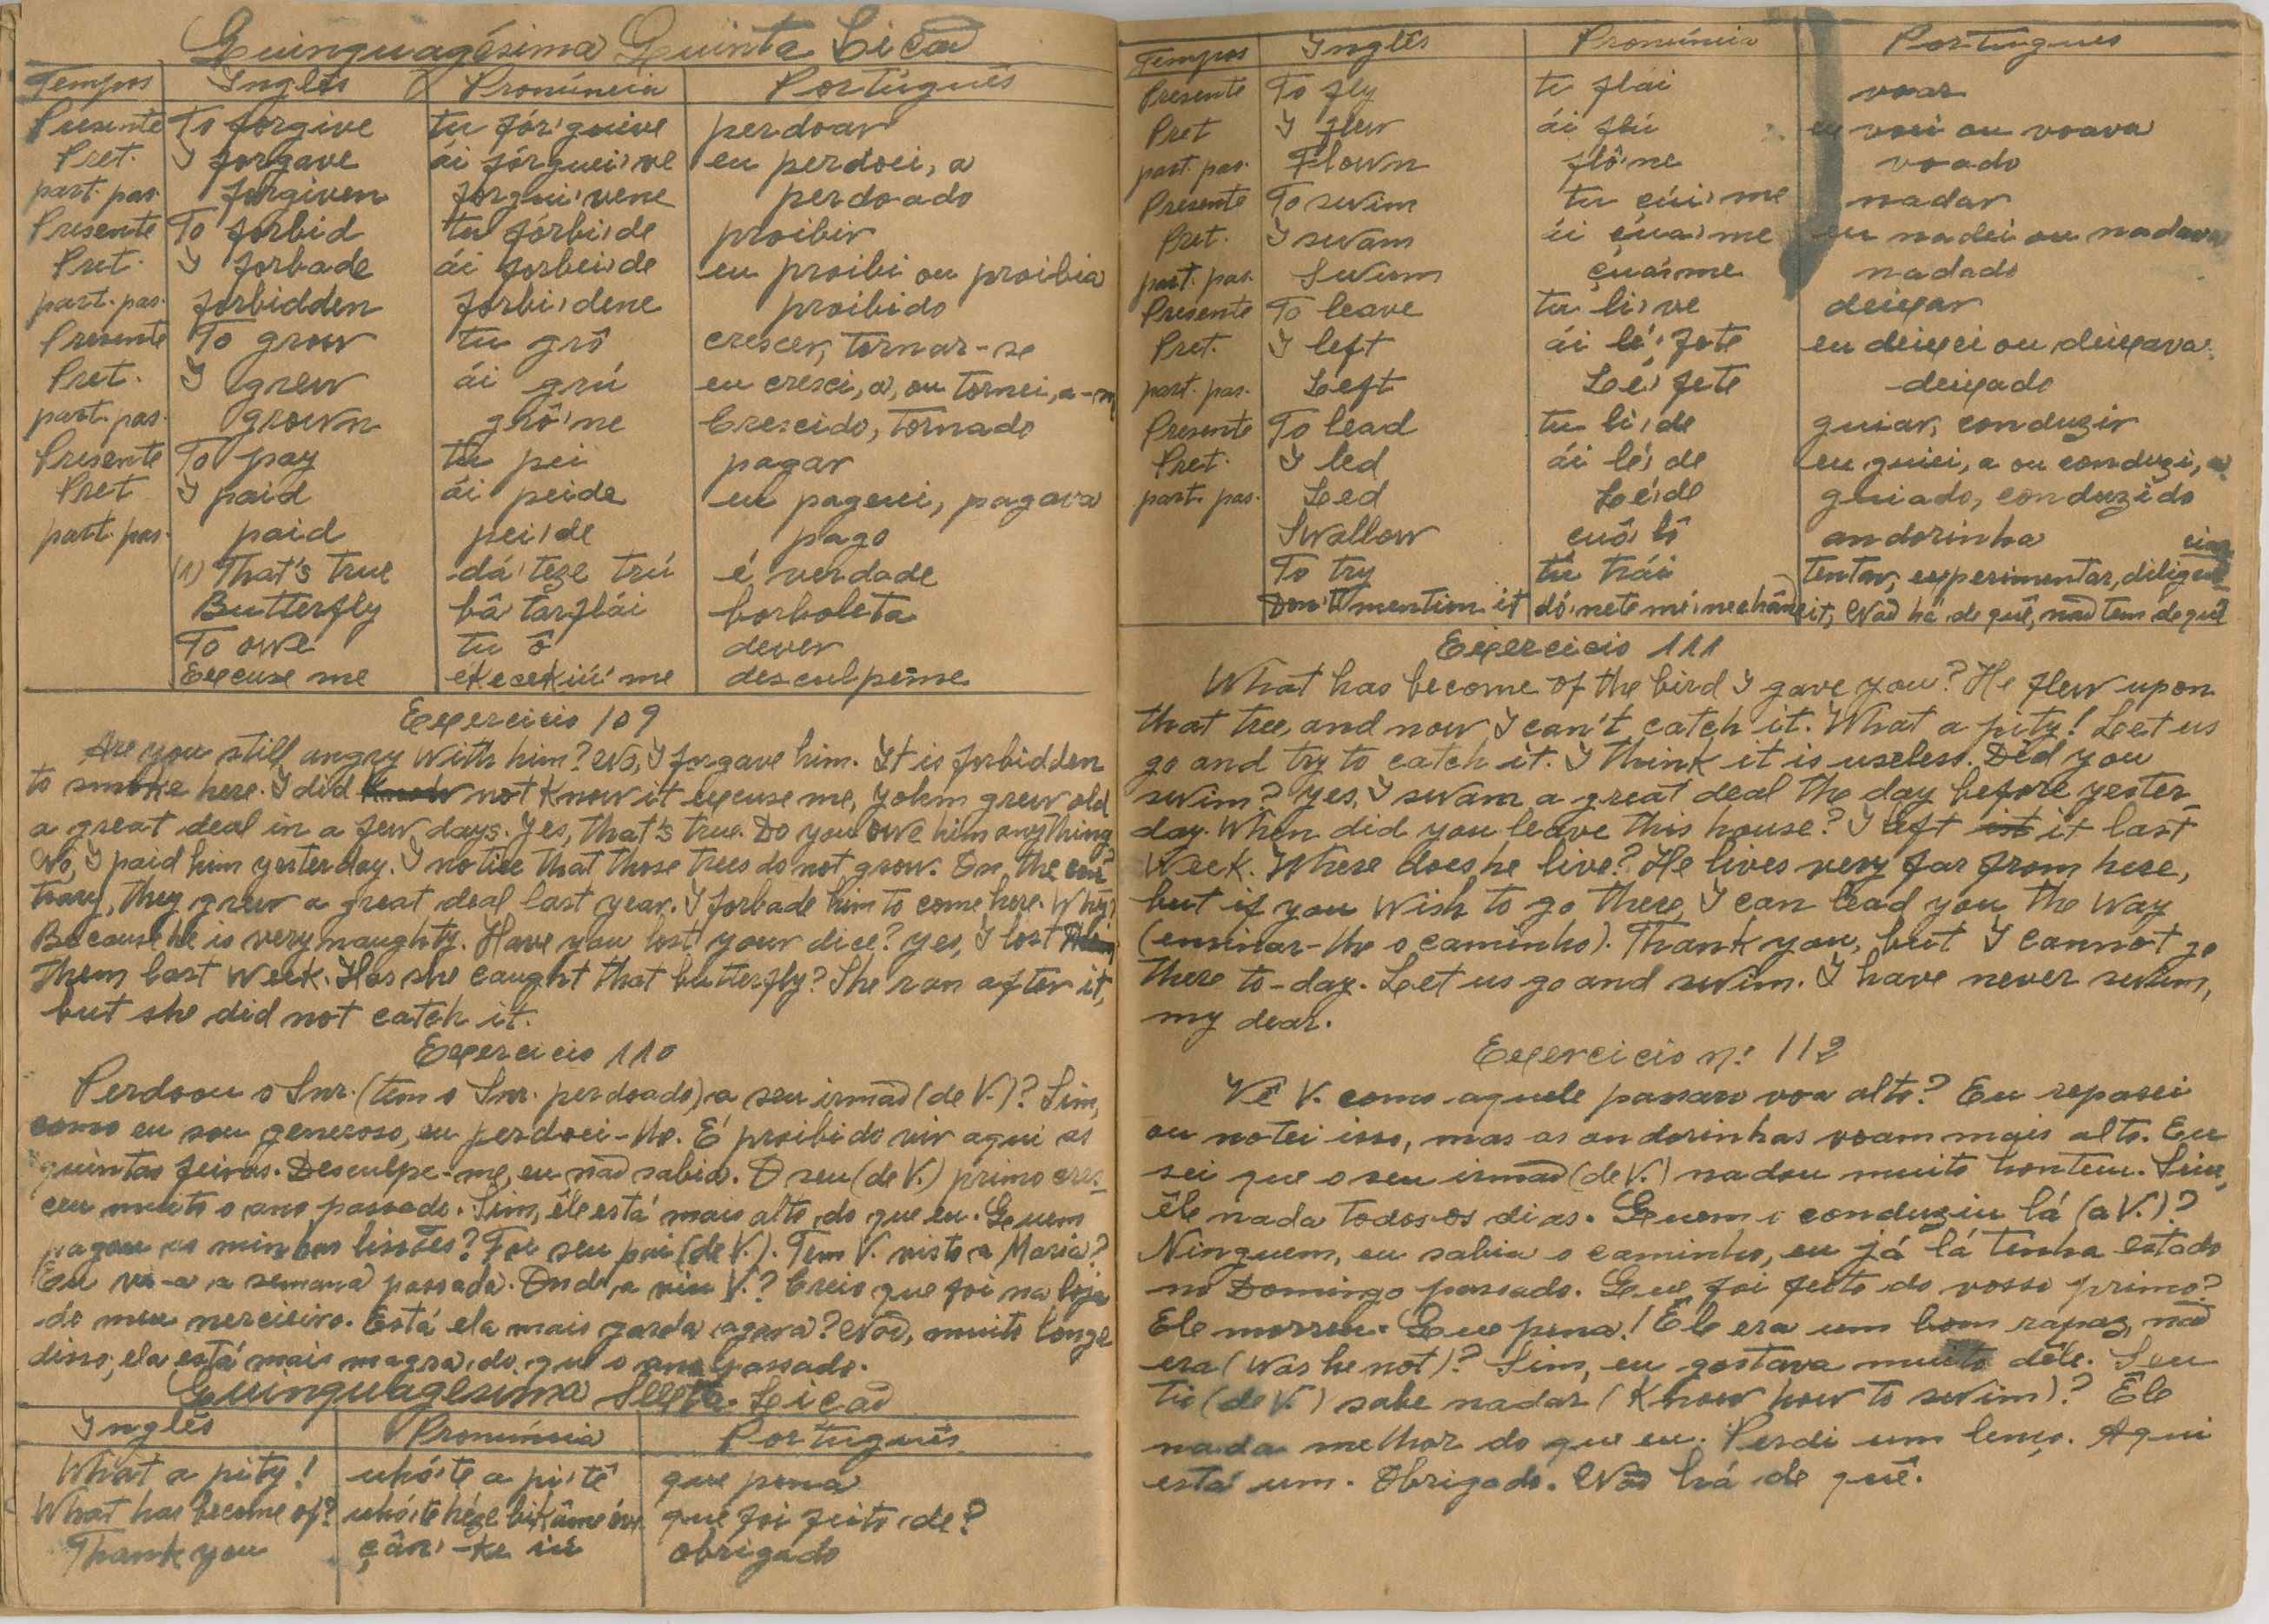 Quinquagésima Quinta Licão
Tempos Inglês Pronúncia Português
Presente To forgive tu fór'guive perdoar
Pret. I forgave ái fórguei've eu perdoei, a
part. pas. forgiven forgui'vene perdoado
Presente To forbid tu fórbi'de proibir
Pret. I forbade ái forbei'de eu proibi ou proibia
part. pas. forbidden forbi'dene proibido
Presente To grow tu grô crescer, tornar-se
Pret. I grew ái grú eu cresci, a, ou tornei, a-m
part. pas. grown grô'ne Crescido, tornado
Presente To pay tu pei pagar
Pret I paid ái peide eu paguei, pagava
part. pas. paid pei'de pago
(1) That's true dá'teze trú é verdade
Butterfly bâ'tarflái borboleta
To owe tu ô dever
Excuse me ékecekiú'me desculpeme
Exercicio 109
Are you still angry with him? No, I forgave him. It is forbidden
to smoke here. I did know not know it excuse me, Yohm grew old
a great deal in a few days. Yes, that's true. Do you owe him anything?
No, I paid him yesterday. I notice that those trees do not grow. On the con
trary, they grew a great deal last year. I forbade him to come here. Why?
Because he is very naughty. Have you lost your dice? yes, I lost
them last week. Has she caught that butterfly? She ran after it,
but she did not catch it.
Exercicio 110
Perdoou o Snr. (tem o Snr. perdoado) a seu irmão (de V.)? Sim,
como eu sou generoso, eu perdoei-lhe. É proibido vir aqui as
quintas feiras. Desculpe-me, eu não sabia. O seu (de V.) primo cres-
ceu muito o ano passado. Sim, êle está mais alto do que eu. Quem
pagou as minhas lissões? Foi seu pai (de V.). Tem V. visto a Maria?
Eu vi-a a semana passada. Onde a viu V.? Creio que foi na loja
do meu merceeiro. Está ela mais gorda agora? Não, muito longe
disso, ela está mais magra do que o ano passado.
Quinquagésima Sexta Licão
Inglês Pronúncia Português
What a pity! uhó'te a pi'tê que pena
What has become of? uhó'te héze bikâme óve que foi feito de?
Thank you çân'-ke iú obrigado
Tempos Inglês Pronúncia Portugues
Presente To fly tu flai voar
Pret I flew ái flú eu voei ou voava
part. pas. Flown flô'ne voado
Presente To swim tu çúi'me nadar
Pret. I swam ái çúa'me eu nadei ou nadava
part. pas. Swum çuá'me nadado
Presente To leave tu li've deixar
Pret. I left ái lé'fete eu deixei ou deixava
part. pas. Left Lé'fete deixado
Presente To lead tu li'de guiar, conduzir
Pret. I led ái lé'de eu guiei, a ou conduzi, a
part. pas. Led Lé'de guiado, conduzido
Swallow cuó'lô andorinha
To try tu trái tentar, experimentar, diligenciar
Don't mention it dó'nete mé'nechâneit, Não há de quê, não tem de quê
Exercicio 111
What has become of the bird I gave you? He flew upon
that tree, and now I can't catch it. What a pity! Let us
go and try to catch it. I think it is useless. Did you
swim? yes, I swam a great deal the day before yester-
day. When did you leave this house? I left ist it last
week. Where does he live? He lives very far from here,
but if you wish to go there, I can lead you the way
(ensinar-lhe o caminho). Thank you, but I cannot go
there to-day. Let us go and swim. I have never swum,
my dear.
Exercicio nº 112
Vê V. como aquele passaro voa alto? Eu reparei
ou notei isso, mas as andorinhas voam mais alto. Eu
sei que o seu irmão (de V.) nadou muito hontem. Sim,
êle nada todos os dias. Quem o conduziu lá (a V.)?
Ninguem, eu sabia o caminho, eu já lá tenha estado
no Domingo passado. Que foi feito do vosso primo?
Ele morreu. Que pena! Êle era um bom rapaz, não
era (was he not)? Sim, eu gostava muito dêle. Seu
tio (de V.) sabe nadar (know how to swim)? Êle
nada melhor do que eu. Perdi um lenço. Aqui
está um. Obrigado. Não há de quê.